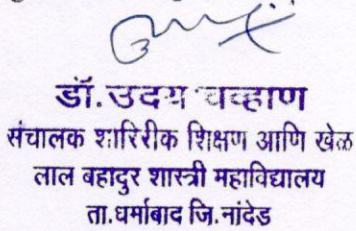 डॉ.उदय चव्हाण
संचालक शारिरीक शिक्षण आणि खेळ
लाल बहादुर शास्त्री महाविद्यालय
ता.धर्माबाद जि.नांदेड